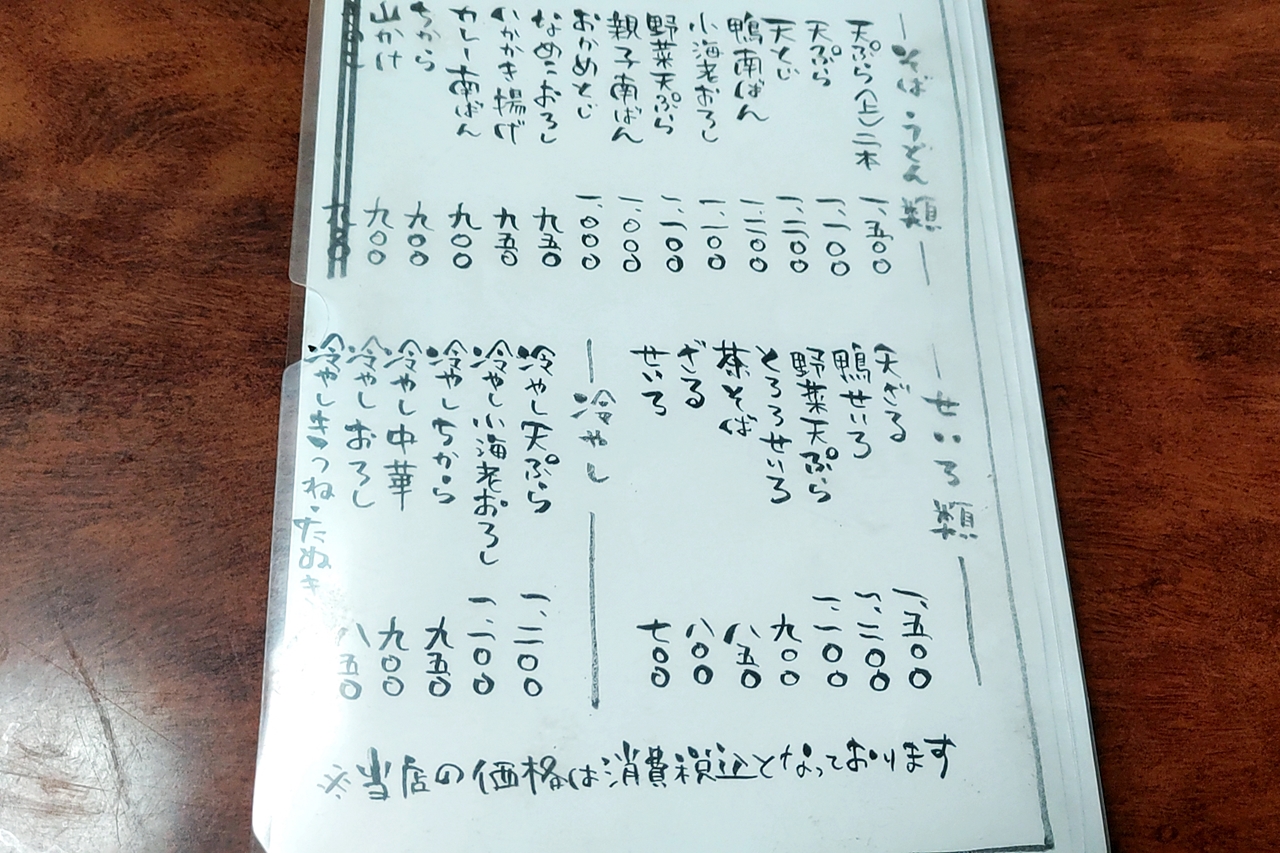 ―そば・うどん類―
天ぷら(上)二本 一、五〇〇
天ぷら 一、一〇〇
天とじ 一、二〇〇
鴨南ばん 一、二〇〇
小海老おろし 一、一〇〇
野菜天ぷら 一、一〇〇
親子南ばん 一、〇〇〇
おかめとじ 一、〇〇〇
なめこおろし 九五〇
いかかき揚げ 九五〇
カレー南ばん 九〇〇
ちから 九〇〇
山かけ 九〇〇
―せいろ類―
天ざる 一、五〇〇
鴨せいろ 一、二〇〇
野菜天ぷら 一、一〇〇
とろろせいろ 九〇〇
茶そば 八五〇
ざる 八〇〇
せいろ 七〇〇
―冷やし―
冷やし天ぷら 一、二〇〇
冷やし小海老おろし 一、一〇〇
冷やしちから 九五〇
冷やし中華 九〇〇
冷やしおろし 八五〇
冷やしきつね・たぬき
※当店の価格は消費税込となっております